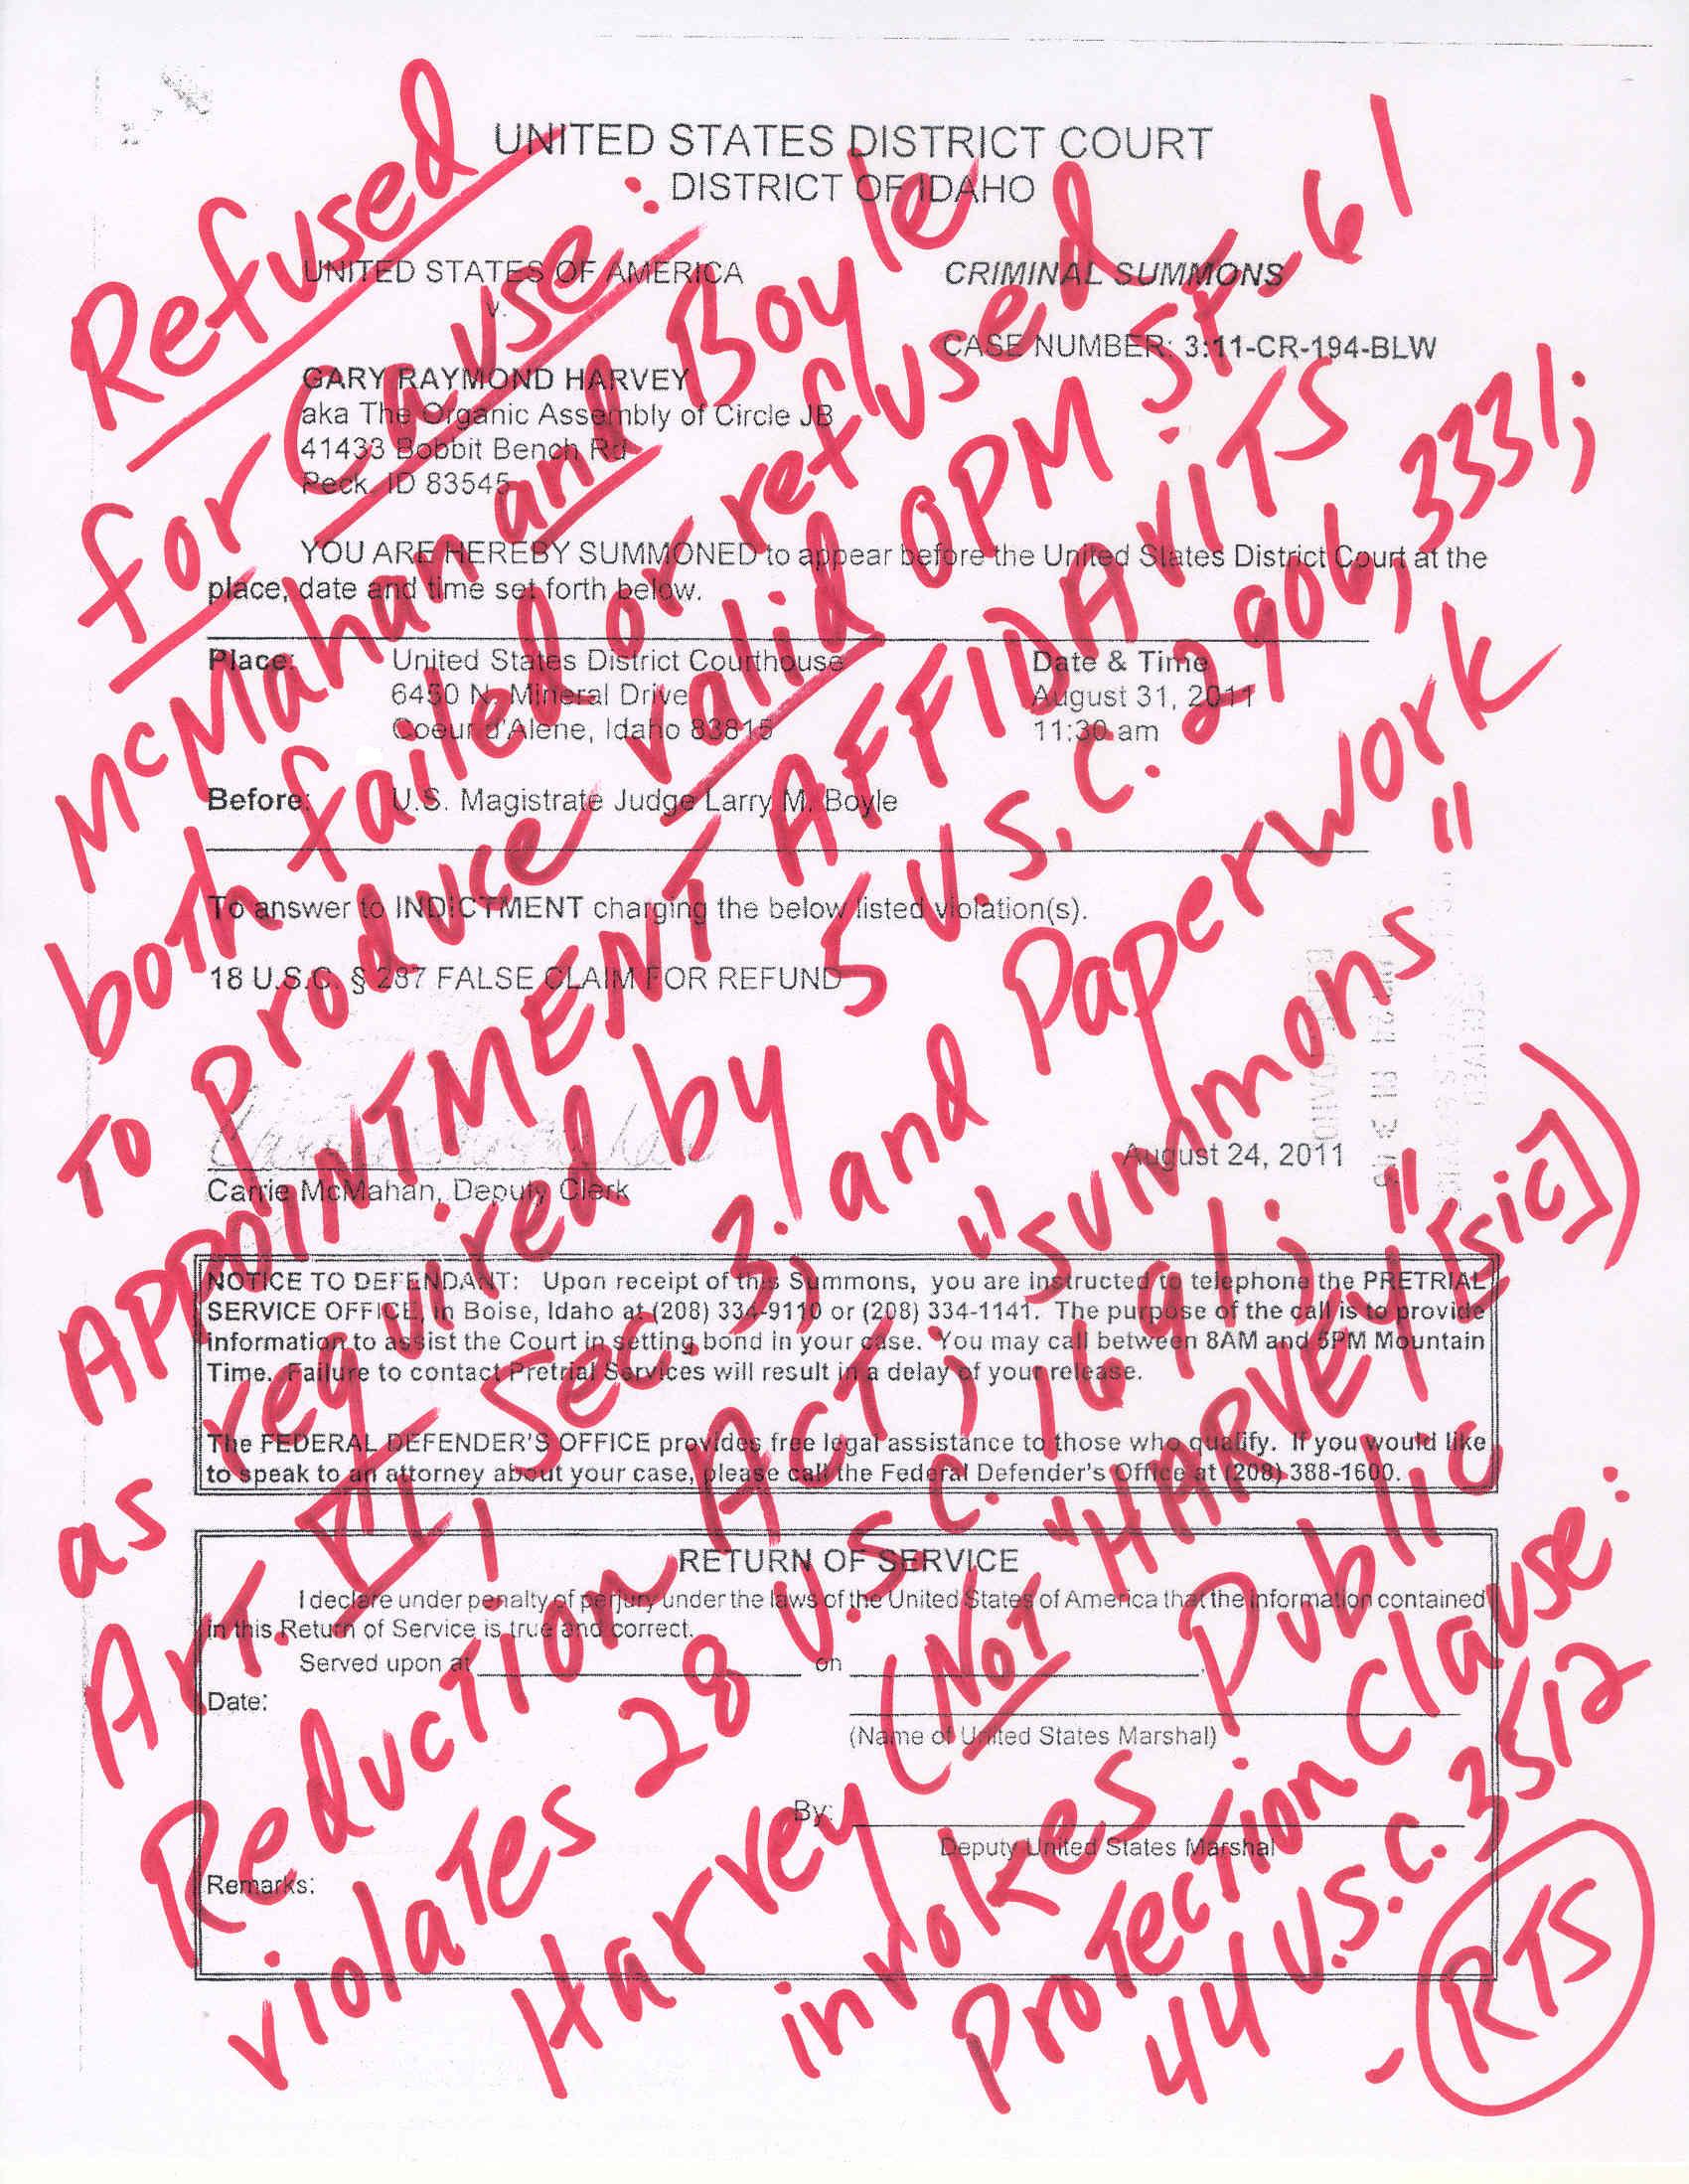 UNITED STATES DISTRICT COURT
DISTRICT OF IDAHO
UNITED STATES OF AMERICA
v.
CRIMINAL SUMMONS
CASE NUMBER: 3:11-CR-194-BLW
GARY RAYMOND HARVEY
aka The Organic Assembly of Circle JB
41433 Bobbit Bench Rd
Peck, ID 83545
YOU ARE HEREBY SUMMONED to appear before the United States District Court at the
place, date and time set forth below.
Place: United States District Courthouse Date & Time
6450 N. Mineral Drive August 31, 2011
Coeur d'Alene, Idaho 83815 11:30 am
Before: U.S. Magistrate Judge Larry M. Boyle
To answer to INDICTMENT charging the below listed violation(s).
18 U.S.C. § 287 FALSE CLAIM FOR REFUND
August 24, 2011
Carrie McMahan, Deputy Clerk
NOTICE TO DEFENDANT: Upon receipt of this Summons, you are instructed to telephone the PRETRIAL
SERVICE OFFICE, in Boise, Idaho at (208) 334-9110 or (208) 334-1141. The purpose of the call is to provide
information to assist the Court in setting bond in your case. You may call between 8AM and 5PM Mountain
Time. Failure to contact Pretrial Services will result in a delay of your release.
The FEDERAL DEFENDER'S OFFICE provides free legal assistance to those who qualify. If you would like
to speak to an attorney about your case, please call the Federal Defender's Office at (208) 388-1600.
RETURN OF SERVICE
I declare under penalty of perjury under the laws of the United States of America that the information contained
in this Return of Service is true and correct.
Served upon at on
Date:
(Name of United States Marshal)
By:
Deputy United States Marshal
Remarks:
Refused
for Cause:
McMahan and Boyle
both failed or refused
To Produce valid OPM SF-61
APPOINTMENT AFFIDAVITS
as required by 5 U.S.C. 2906, 3331;
Art. VI, Sec. 3; and Paperwork
Reduction ACT; "summons"
violates 28 U.S.C. 1691;
Harvey (NOT "HARVEY" [sic])
invokes Public
Protection Clause:
44 U.S.C. 3512
- RTS